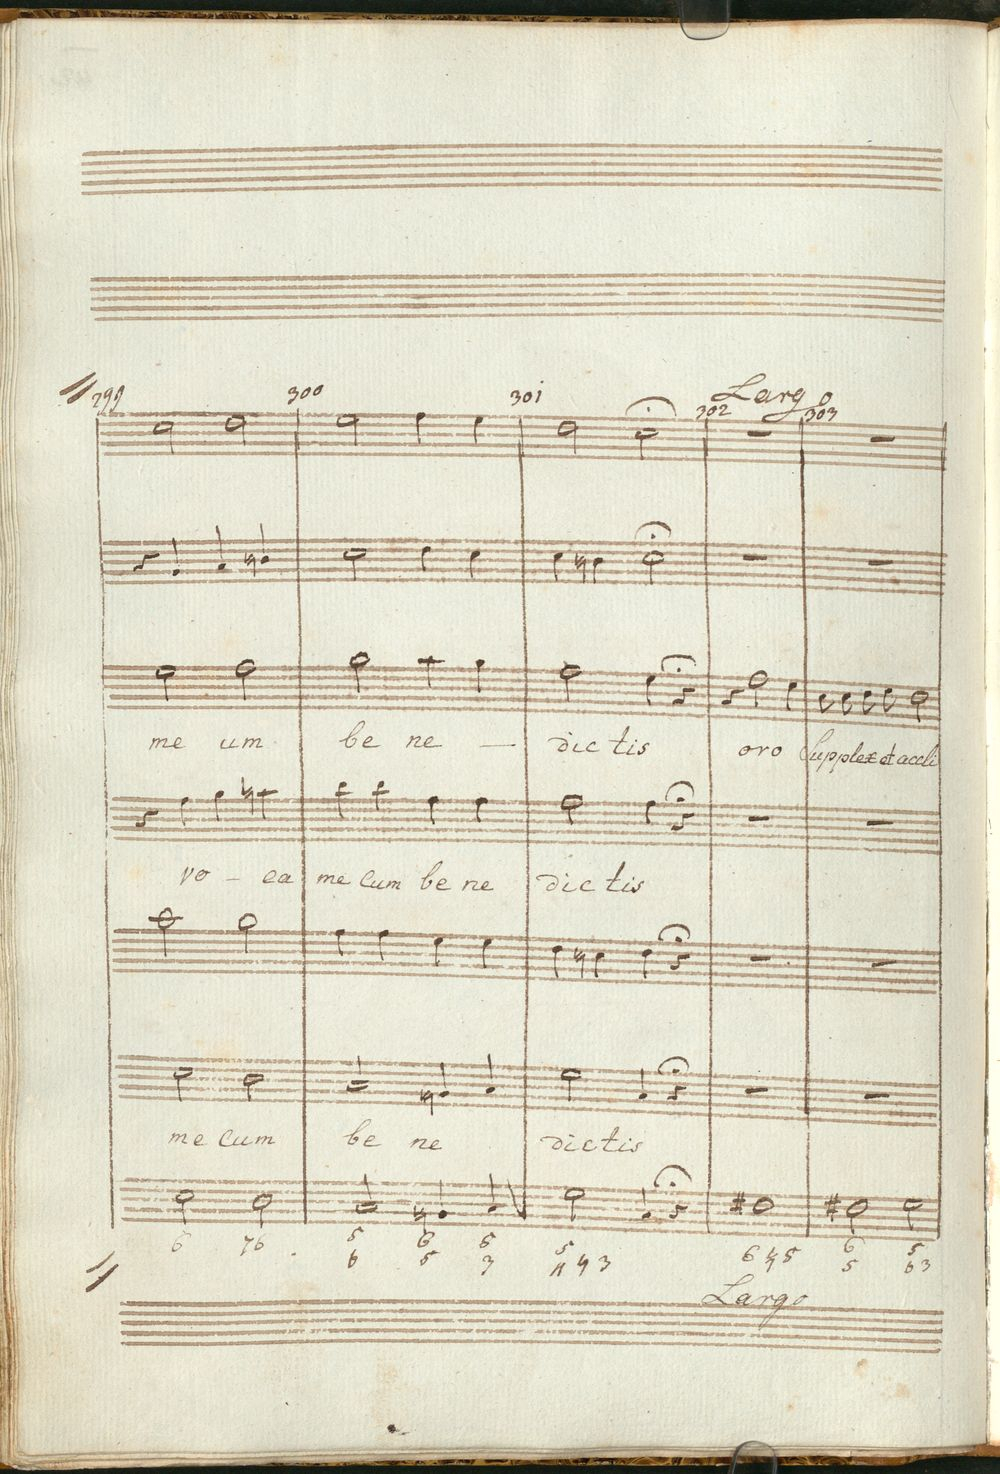 299 300 301 302 Largo 303
me um be ne — dic tis oro Supplex et accli
vo - ca me cum be ne dic tis
me cum be ne dic tis
6 76 5 6 5 5 6 ♮5 6 5
6 5 3 4 ♮ 3 5 6 3
Largo